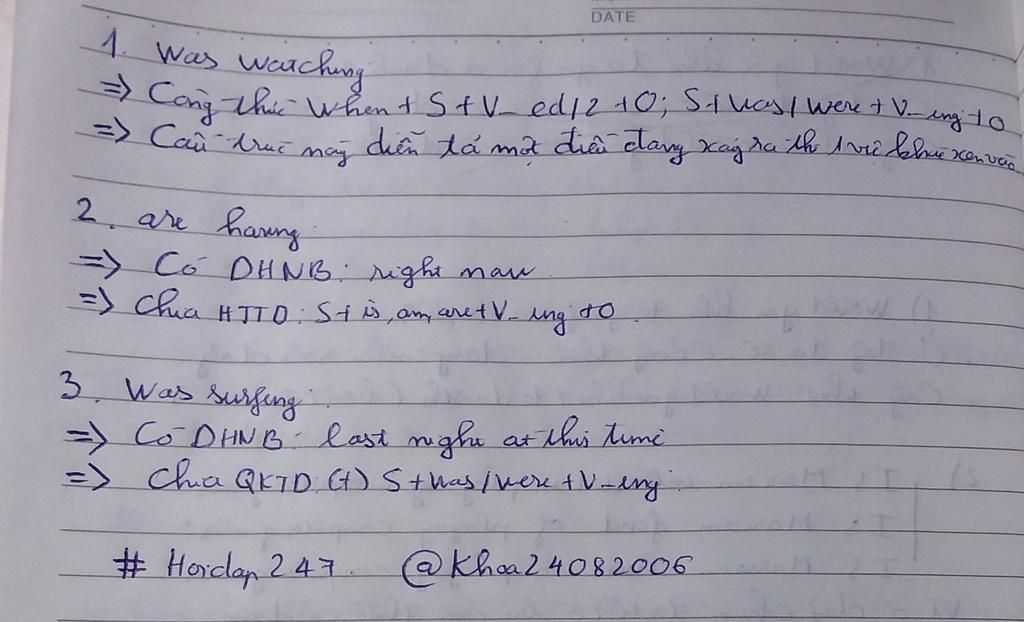 DATE
1. Was watching
=> Công thức When + S + V_ed/2 + O; S + was/were + V_ing + O
=> Cấu trúc này diễn tả một điều đang xảy ra thì 1 việc khác xen vào
2. are having
=> Có DHNB: right now.
=> Chia HTTD: S + is, am, are + V_ing + O.
3. Was surfing.
=> Có DHNB: last night at this time
=> Chia QKTD: (+) S + was/were + V_ing.
# Hoidap 247. @Khoa24082006